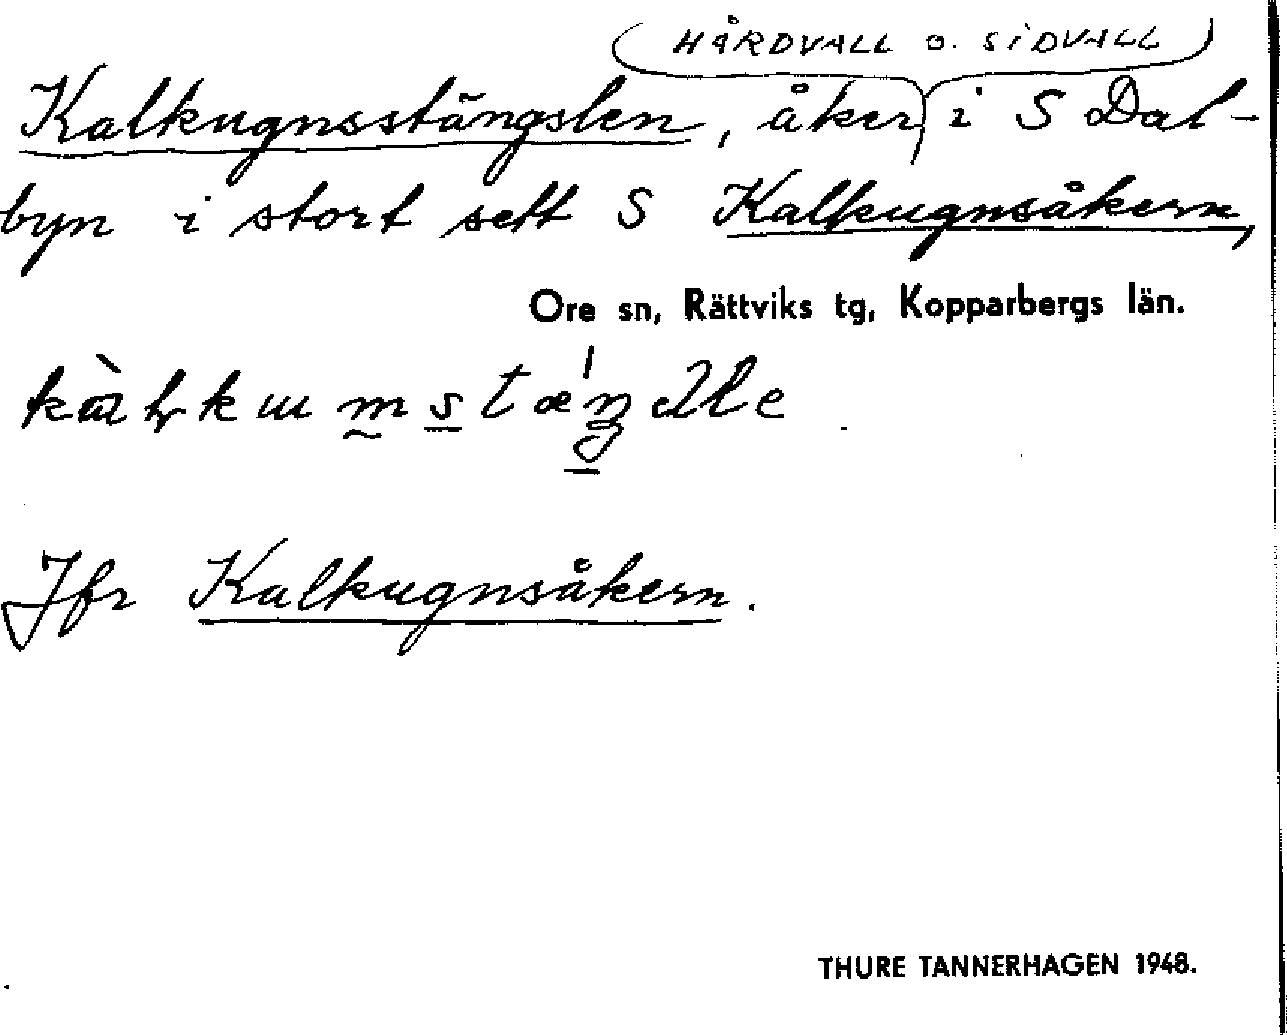 (HÅRDVALL o. SIDVALL)
Kalkugnsstängslen, åker i S Dal-
byn i stort sett S Kalkugnsåkern,
Ore sn, Rättviks tg, Kopparbergs län.
Jfr Kalkugnsåkern.
THURE TANNERHAGEN 1948.